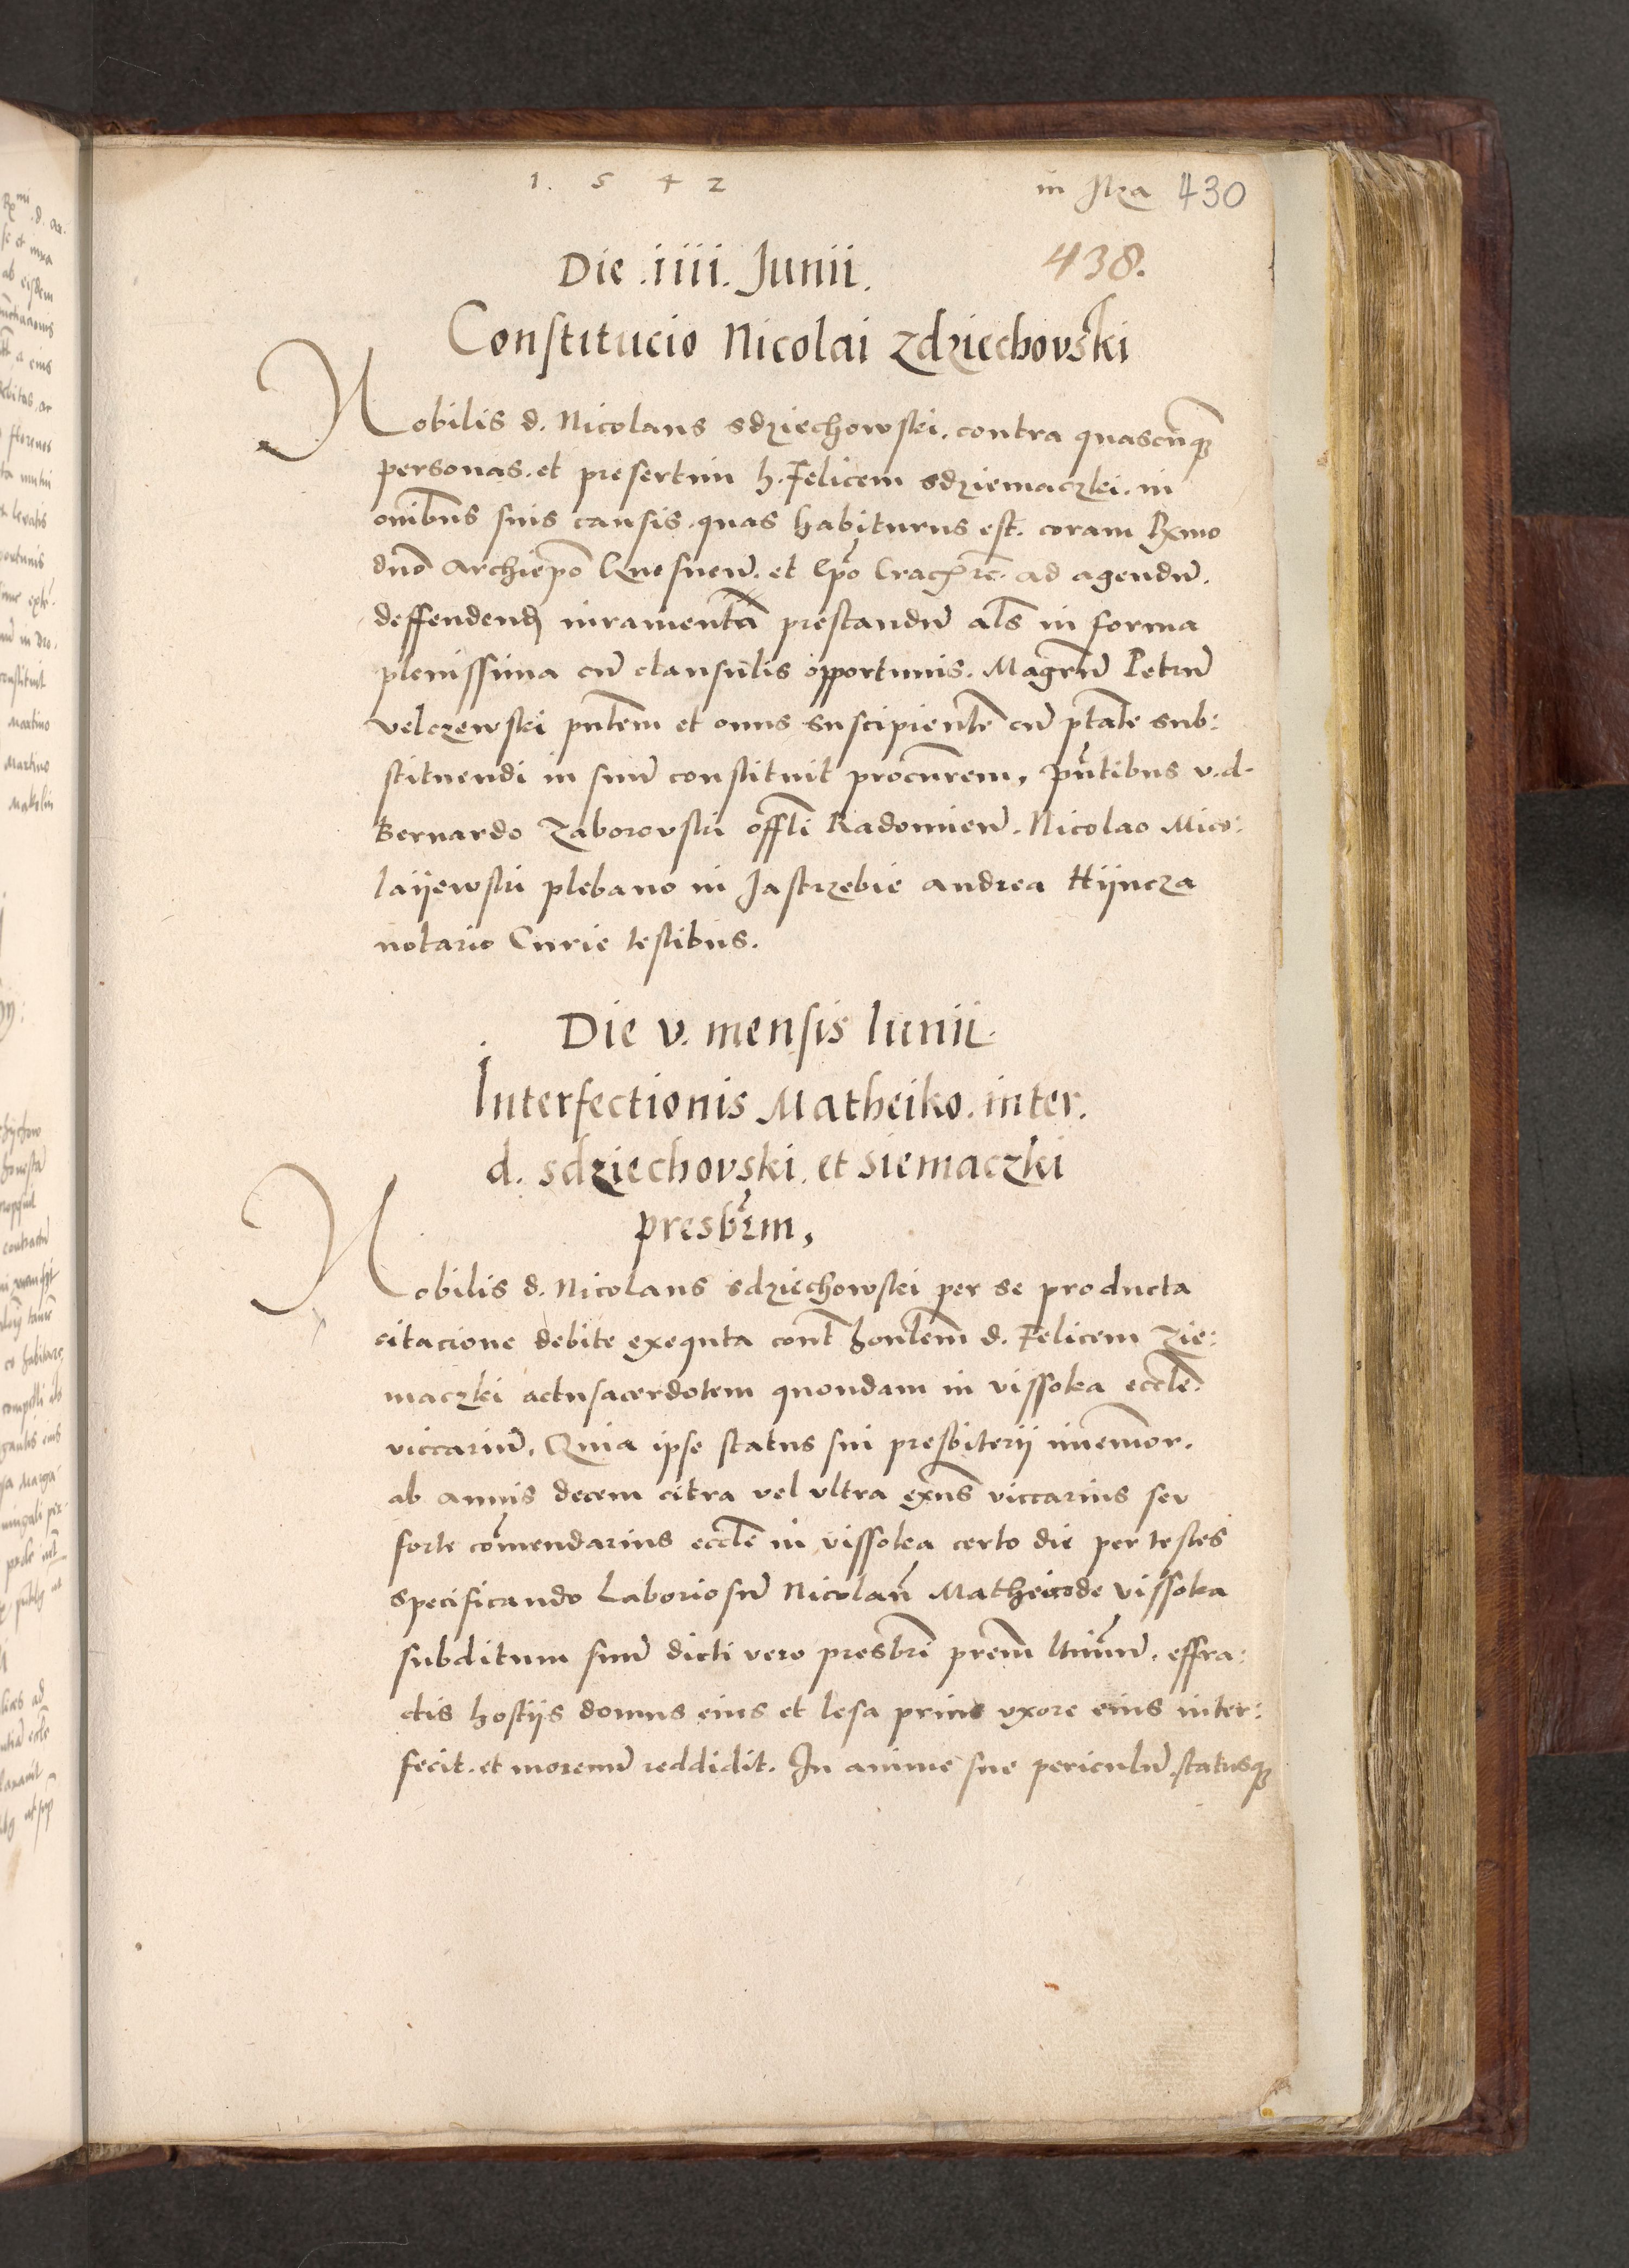 1. 5 4 2 in Ilza 430
438.
Die .iiii. Junii.
Constitucio Nicolai Zdziechovski
Nobilis d. Nicolaus Sdziechowski. contra quascunq3
personas. et presertim h. Felicem Sdziemaczki. in
om̅ibus suis causis. quas habiturus est. coram Rx̅mo
dn̅o Archiep̅o Gnesnen̅. et Ep̅o Crac̅ ad agendu̅.
deffendend iuramenta̅ prestandu̅ al̅s in forma
plenissima cu̅ clausulis opportunis. Magr̅u̅ Petru̅
Velczewski pn̅tem et onus suscipiente̅ cu̅ pt̅ate sub:
stituendi in suu̅ constituit procur̅em, Pn̅tibus v. d.
Bernardo Zaborovski offl̅i Radomien̅. Nicolao Mico:
laijewski plebano in Jastrzebie Andrea Hijncza
notario Curie testibus.
Die v. mensis Iunii.
Interfectionis Matheiko. inter.
d. Sdziechovski. et Siemaczki
presb̅rm,
Nobilis d. Nicolaus Sdziechowski per se producta
citacione debite exequta cont̅ hon̅tem d. Felicem Zie:
maczki actu sacerdotem quondam in Vissoka eccl̅e
viccariu̅. Quia ipse status sui presbiterii im̅emor.
ab annis decem citra vel ultra exn̅s viccarius seu
forte com̅endarius eccl̅e in Vissoka certo die per testes
specificando Laboriosu̅ Nicolau̅ Matheico de Vissoka
subditum suu̅ dicti vero presb̅ri pr̅em l̅timu̅. effra:
ctis hostijs domus eius et lesa prius uxore eius inter:
fecit. et moreuu̅ reddidit. In anime sue periculu̅. statusq3